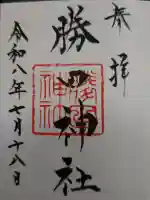 奉拝
勝 神社
令和八年七月十八日